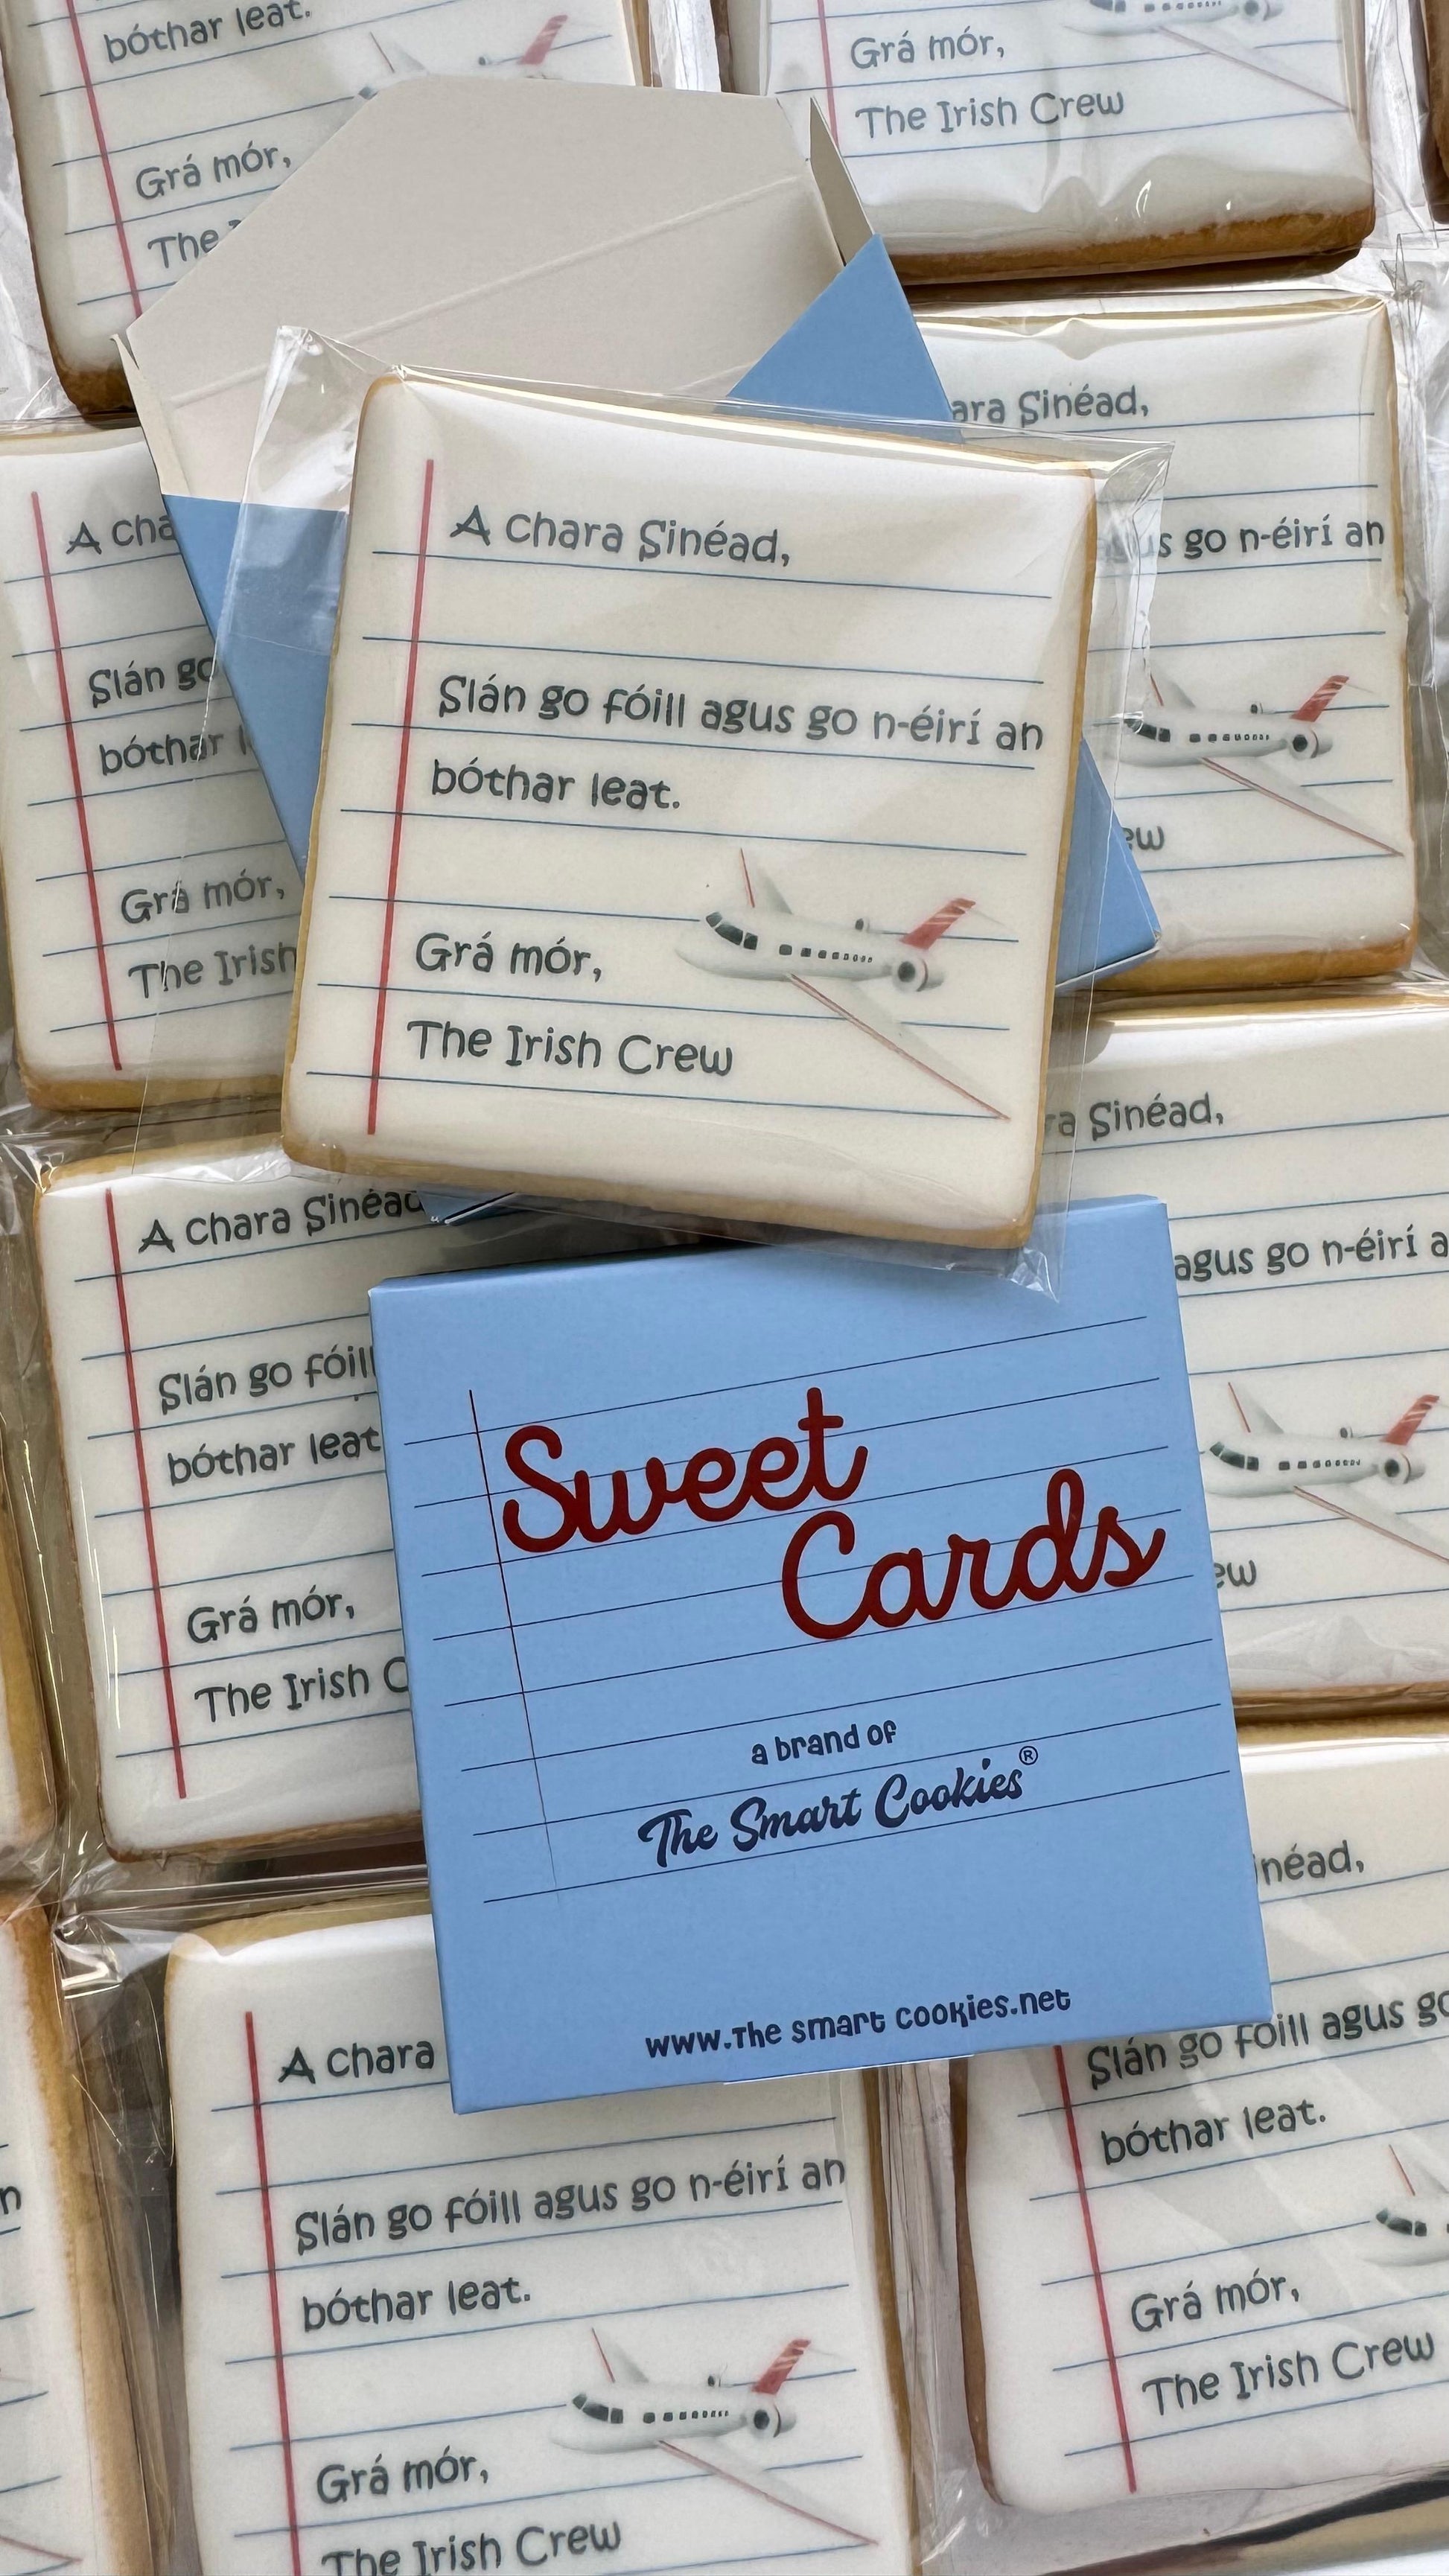 bóthar leat.
Grá mór,
The
Grá mór,
The Irish Crew
Sinéad,
go n-éirí an
A
Slán go
bóthar
Grá mór,
The Irish
A chara Sinéad,
Slán go fóill agus go n-éirí an
bóthar leat.
Grá mór,
The Irish Crew
A chara Sinéad
Slán go fóill
bóthar leat
Grá mór,
The Irish C
Sinéad,
agus go n-éirí a
Sweet
Cards
a brand of
The Smart Cookies®
www.The smart cookies.net
A chara
Slán go fóill agus go n-éirí an
bóthar leat.
Grá mór,
The Irish Crew
Slán go fóill agus go
bóthar leat.
Grá mór,
The Irish Crew